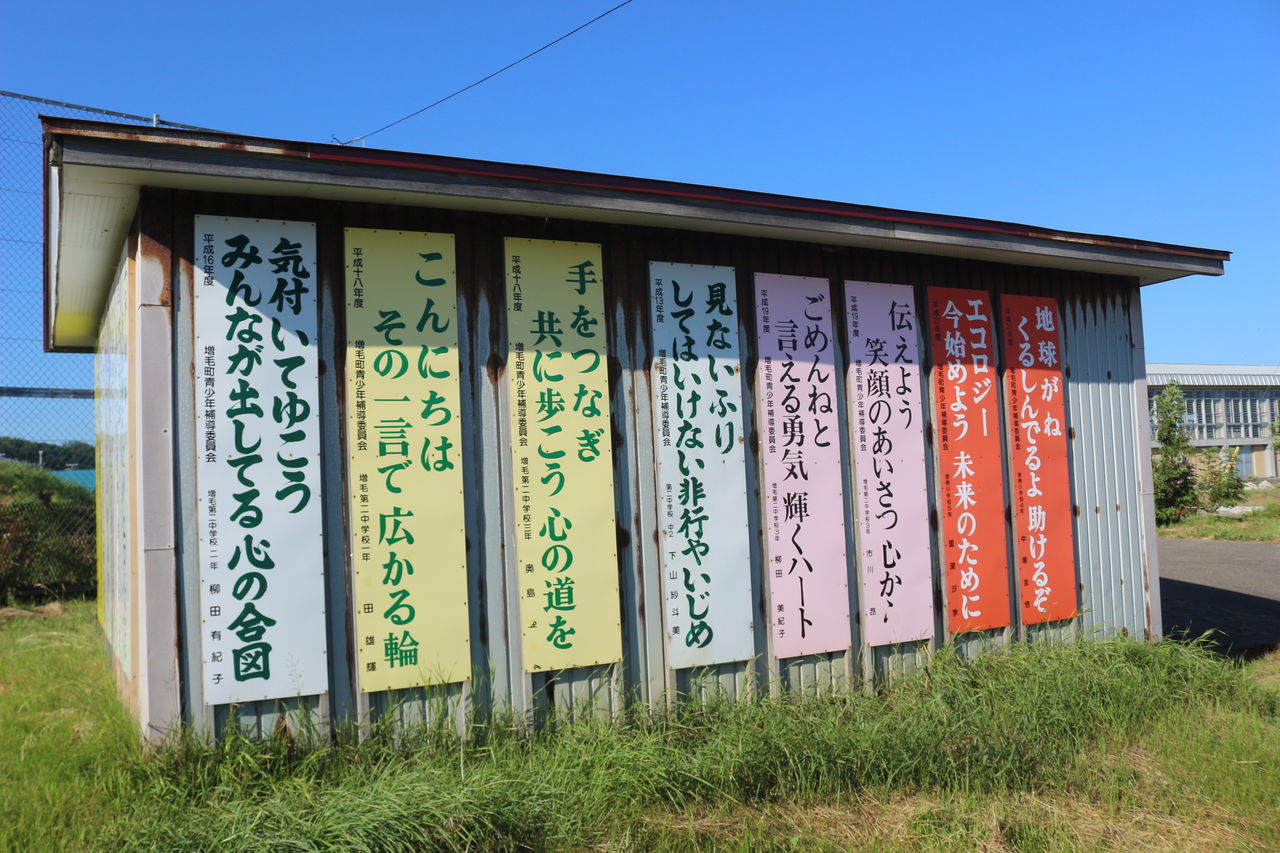 気付いてゆこう
みんなが出してる心の合図
平成16年度 増毛町青少年補導委員会 増毛第二中学校二年 柳田有紀子
こんにちは
その一言で広かる輪
平成十八年度 増毛町青少年補導委員会 増毛第二中学校一年 田雄輝
手をつなぎ
共に歩こう心の道を
平成十八年度 増毛町青少年補導委員会 増毛第二中学校三年 奥島
見ないふり
してはいけない非行やいじめ
平成13年度 増毛町青少年補導委員会 第二中学校 中2 下山紗斗美
ごめんねと
言える勇気 輝くハート
平成19年度 増毛町青少年補導委員会 増毛第二中学校3年 柳田美紀子
伝えよう
笑顔のあいさつ 心から
平成19年度 増毛町青少年補導委員会 増毛第二中学校3年 市川昂
エコロジー
今始めよう 未来のために
増毛町青少年補導委員会
地球がね
くるしんでるよ 助けるぞ
増毛町青少年補導委員会